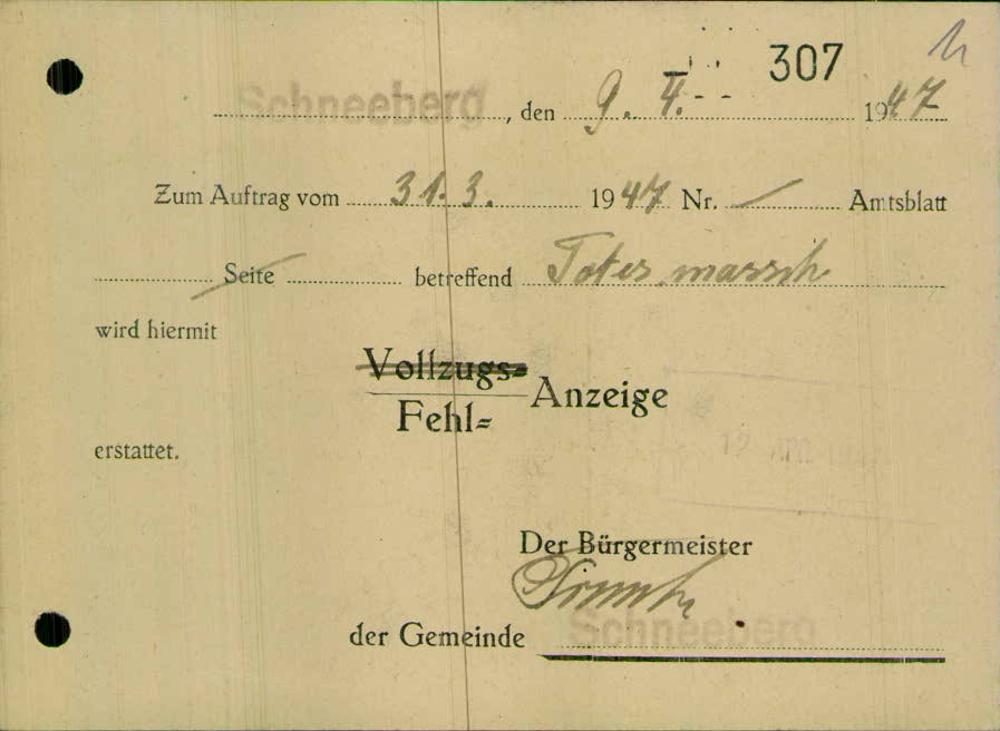 307
Schneeberg, den 9. 4. 1947
Zum Auftrag vom 31. 3. 1947 Nr. / Amtsblatt
Seite betreffend Totesmarsch
wird hiermit
Vollzugs=
Fehl= Anzeige
erstattet.
Der Bürgermeister
der Gemeinde Schneeberg